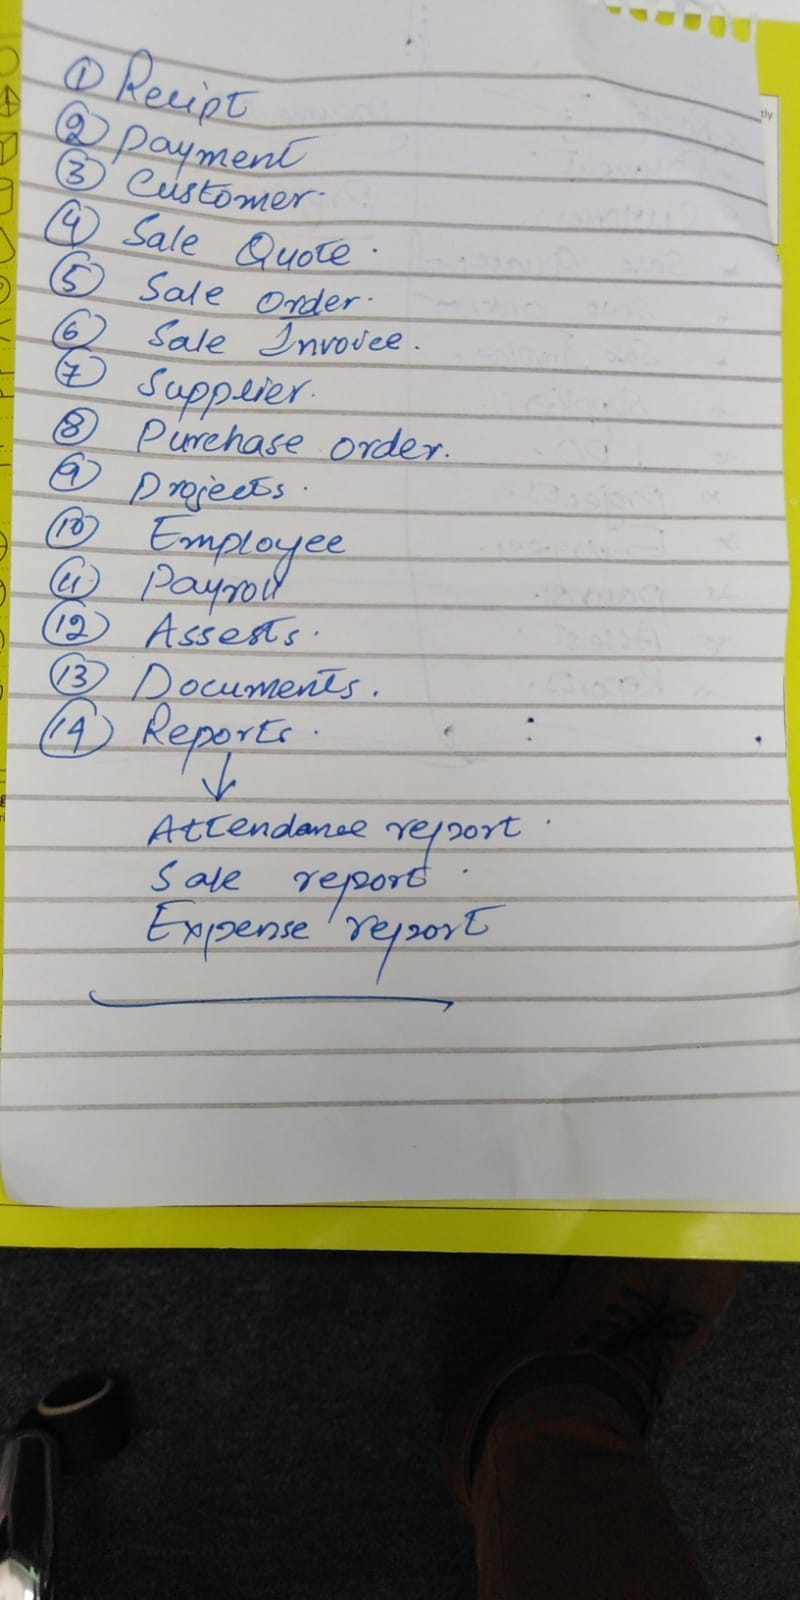 ① Receipt
② Payment
③ Customer.
④ Sale Quote.
⑤ Sale Order.
⑥ Sale Invoice.
⑦ Supplier.
⑧ Purchase order.
⑨ Projects.
⑩ Employee
⑪ Payroll
⑫ Assests.
⑬ Documents.
⑭ Reports.
↓
Attendance report.
Sale report.
Expense report